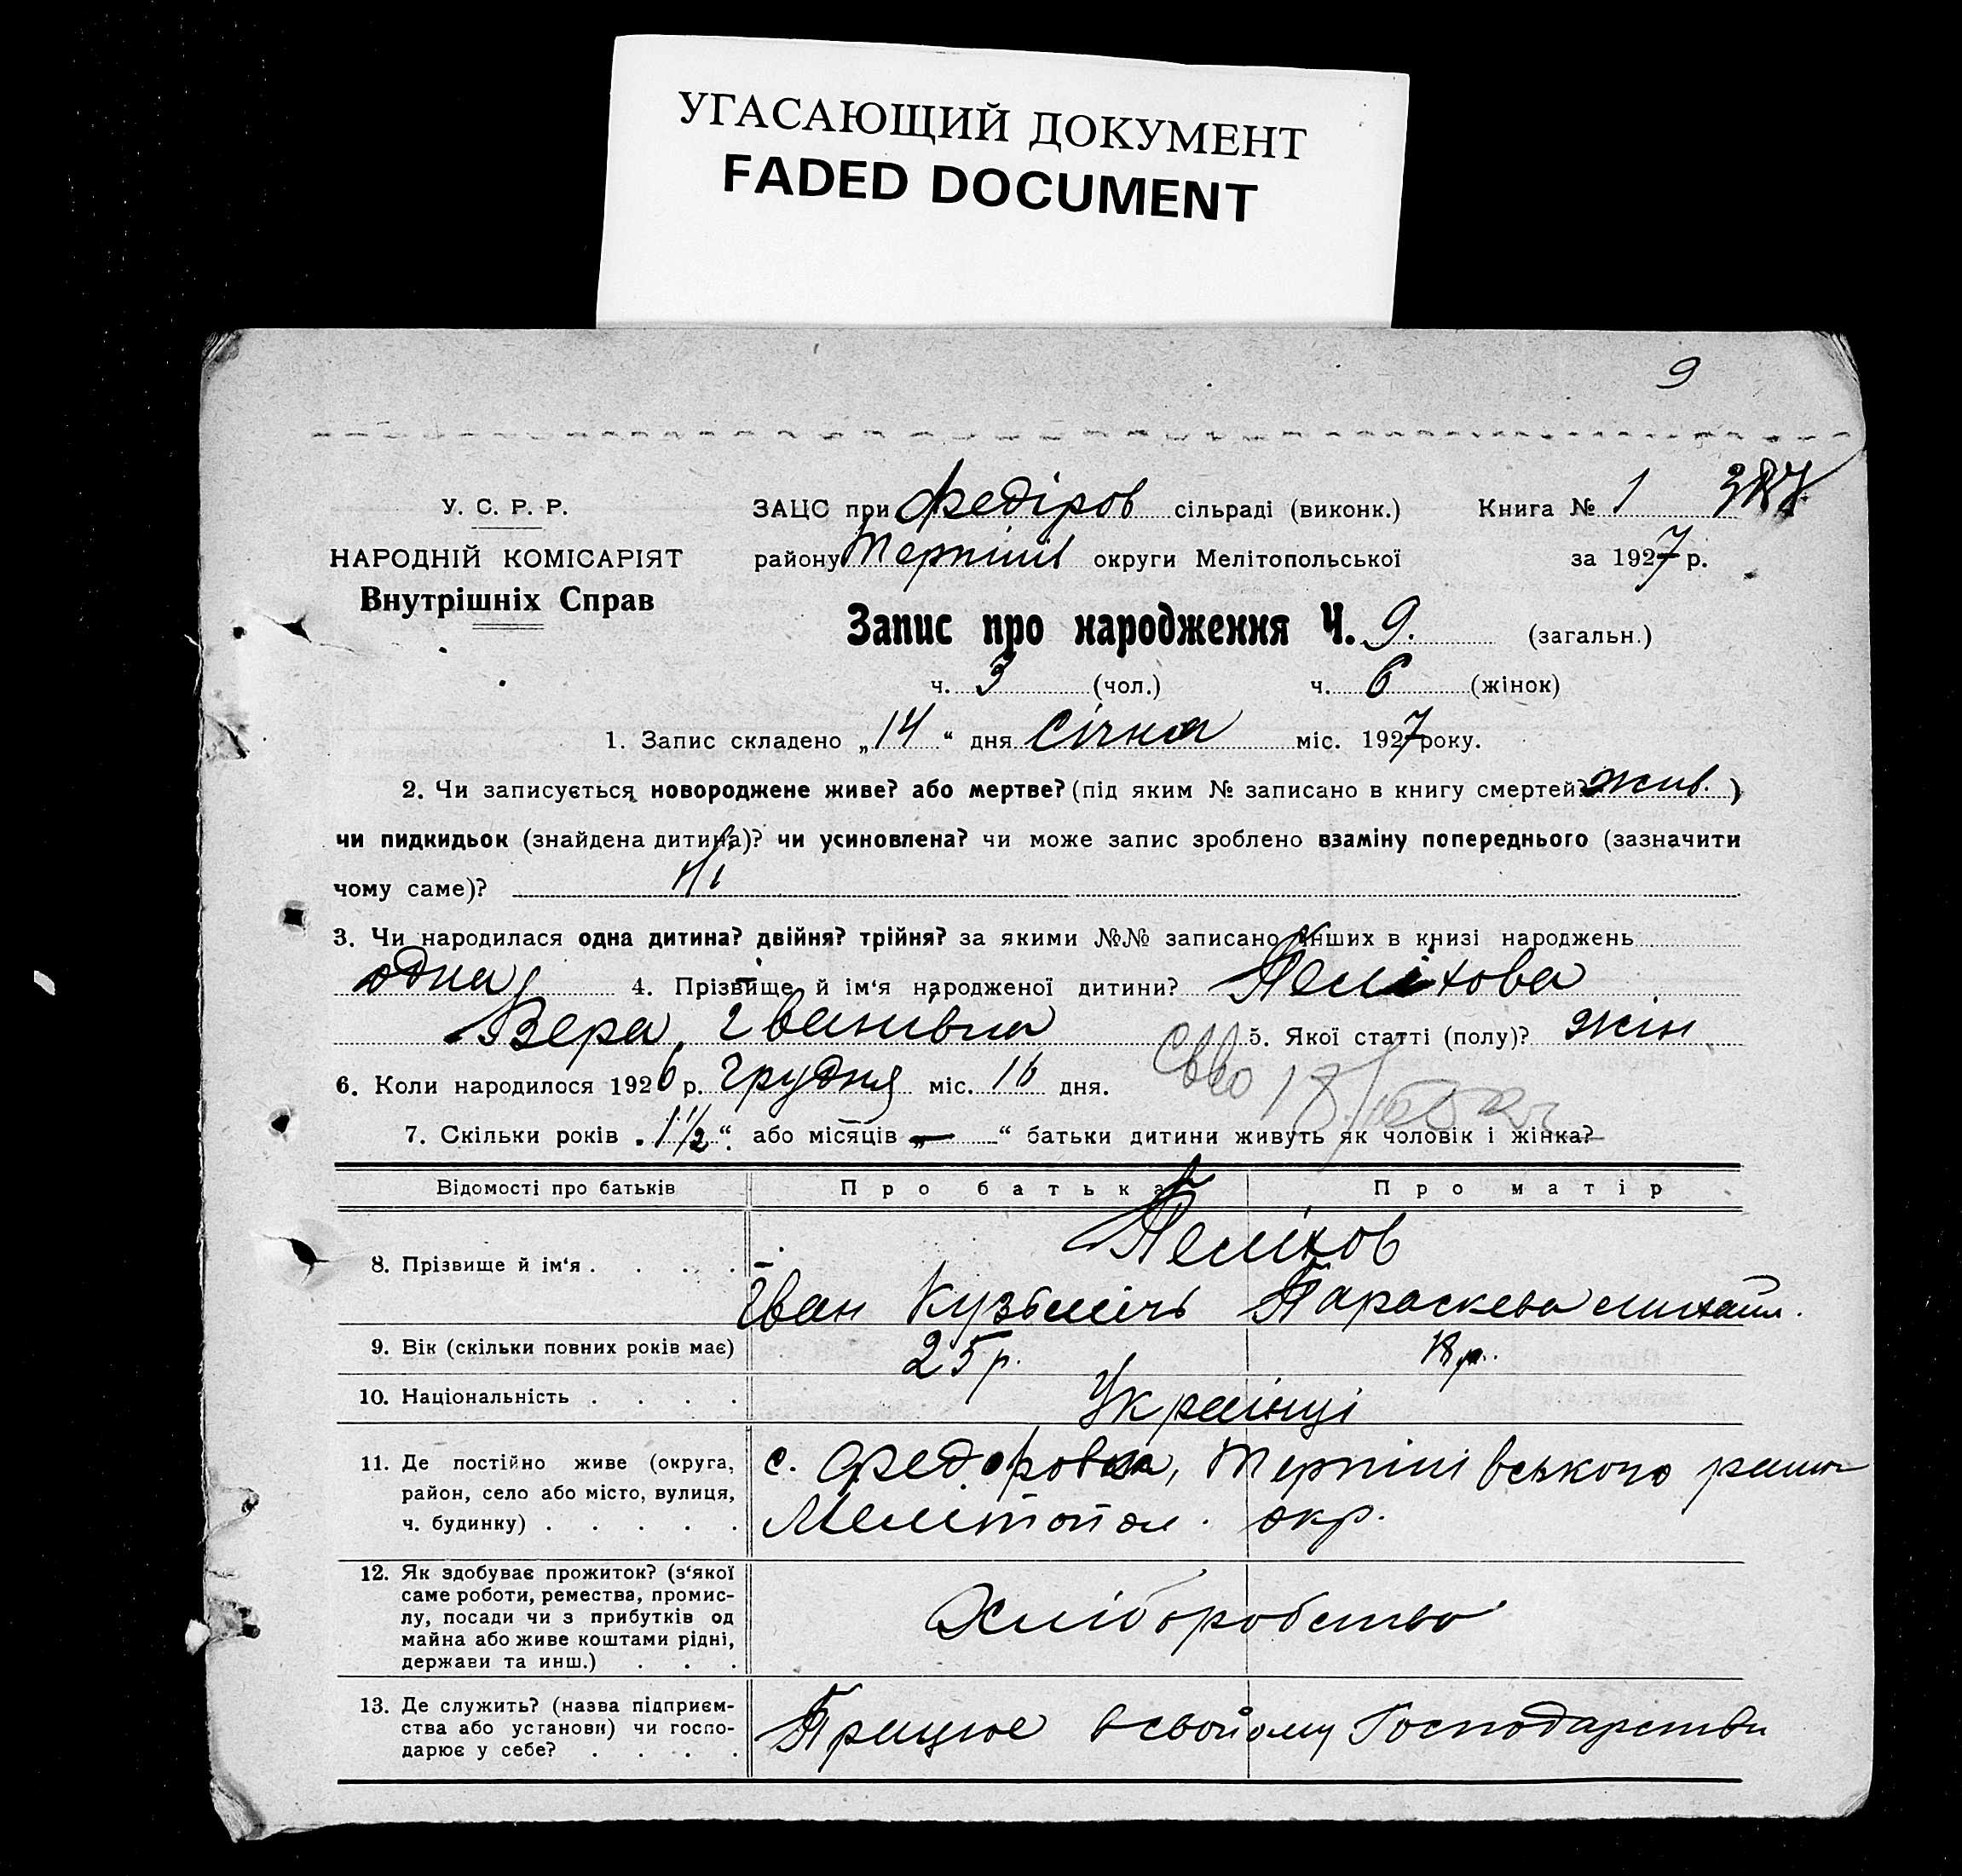 УГАСАЮЩИЙ ДОКУМЕНТ
FADED DOCUMENT
9
У. С. Р. Р.
НАРОДНІЙ КОМІСАРІЯТ
Внутрішніх Справ
ЗАЦС при Федіров сільраді (виконк.) Книга № 1
району Терпінів округи Мелітопольської за 1927 р.
Запис про народження Ч. 9. (загальн.)
ч. 3 (чол.) ч. 6 (жінок)
1. Запис складено „14“ дня Січня міс. 1927 року.
2. Чи записується новороджене живе? або мертве? (під яким № записано в книгу смертей? жив. )
чи пидкидьок (знайдена дитина)? чи усиновлена? чи може запис зроблено взаміну попереднього (зазначити
чому саме)? Ні
3. Чи народилася одна дитина? двійня? трійня? за якими №№ записано інших в книзі народжень
одна 4. Прізвище й ім‘я народженої дитини? Пеліхова
Вера Іванівна 5. Якої статті (полу)? жін
6. Коли народилося 1926 р. Грудня міс. 16 дня.
7. Скільки років „1 1/2“ або місяців „—“ батьки дитини живуть як чоловік і жінка?
Відомості про батьків Про батька Про матір
8. Прізвище й ім‘я . . . . Пеліхов
Іван Кузьмічь Параскева Михайл.
9. Вік (скільки повних років має) 25 р. 18 р.
10. Національність . . . . Українці
11. Де постійно живе (округа, район, село або місто, вулиця, ч. будинку) . . . . . с. Федоровка, Терпінівського району
Мелітопол. окр.
12. Як здобуває прожиток? (з‘якої саме роботи, ремества, промислу, посади чи з прибутків од майна або живе коштами рідні, держави та инш.) . . . Хліборобство
13. Де служить? (назва підприємства або установи) чи господарює у себе? . . . . Працює в свойому Господарстви